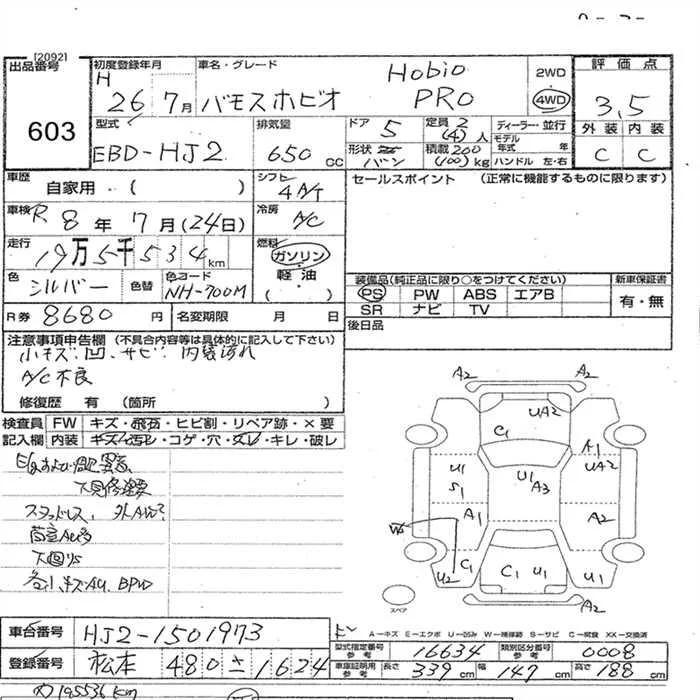 [2092]
出品番号 603
初度登録年月 H 26年 7月
車名・グレード バモスホビオ Hobio PRO
2WD 4WD
評価点 3,5
外装 内装
C C
型式 EBD-HJ2
排気量 650 cc
ドア 5
定員 2 (4)人
形状 バン
積載 200 (100)kg
ディーラー・並行
モデル年式 年
ハンドル 左・右
車歴 自家用・( )
シフト 4A/T
車検 R 8年 7月(24日)
冷房 A/C
走行 19万5千534km
燃料 ガソリン・軽油 ( )
色 シルバー 色替
色コード NH-700M
R券 8680円
名変期限 月 日
セールスポイント (正常に機能するものに限ります)
装備品(純正品に限り○をつけてください)
PS PW ABS エアB
SR ナビ TV
新車保証書
有・無
後日品
注意事項申告欄 (不具合内容等は具体的に記入して下さい)
小キズ 凹 サビ 内装汚れ
A/C不良
修復歴 有 (箇所 )
検査員記入欄
FW キズ・飛石・ヒビ割・リペア跡・×要
内装 キズ・汚レ・コゲ・穴・スレ・キレ・破レ
スタッドレス、
下回りS
各小キズAU、BPW
A2 A2
UA2
C1
A1
UA2
U1
S1
U1
A3
A1
A2
W
C1
U2
C1 U1
U1
A2
スペア
A－キズ E－エクボ U－凹み W－補修跡 S－サビ C－腐食 XX－交換済
車台番号 HJ2-1501973
登録番号 松本 480 き 1624
型式指定番号 参考 16634
類別区分番号 参考 0008
車庫証明用 参考 長さ 339cm 幅 147cm 高さ 188cm
195536 km